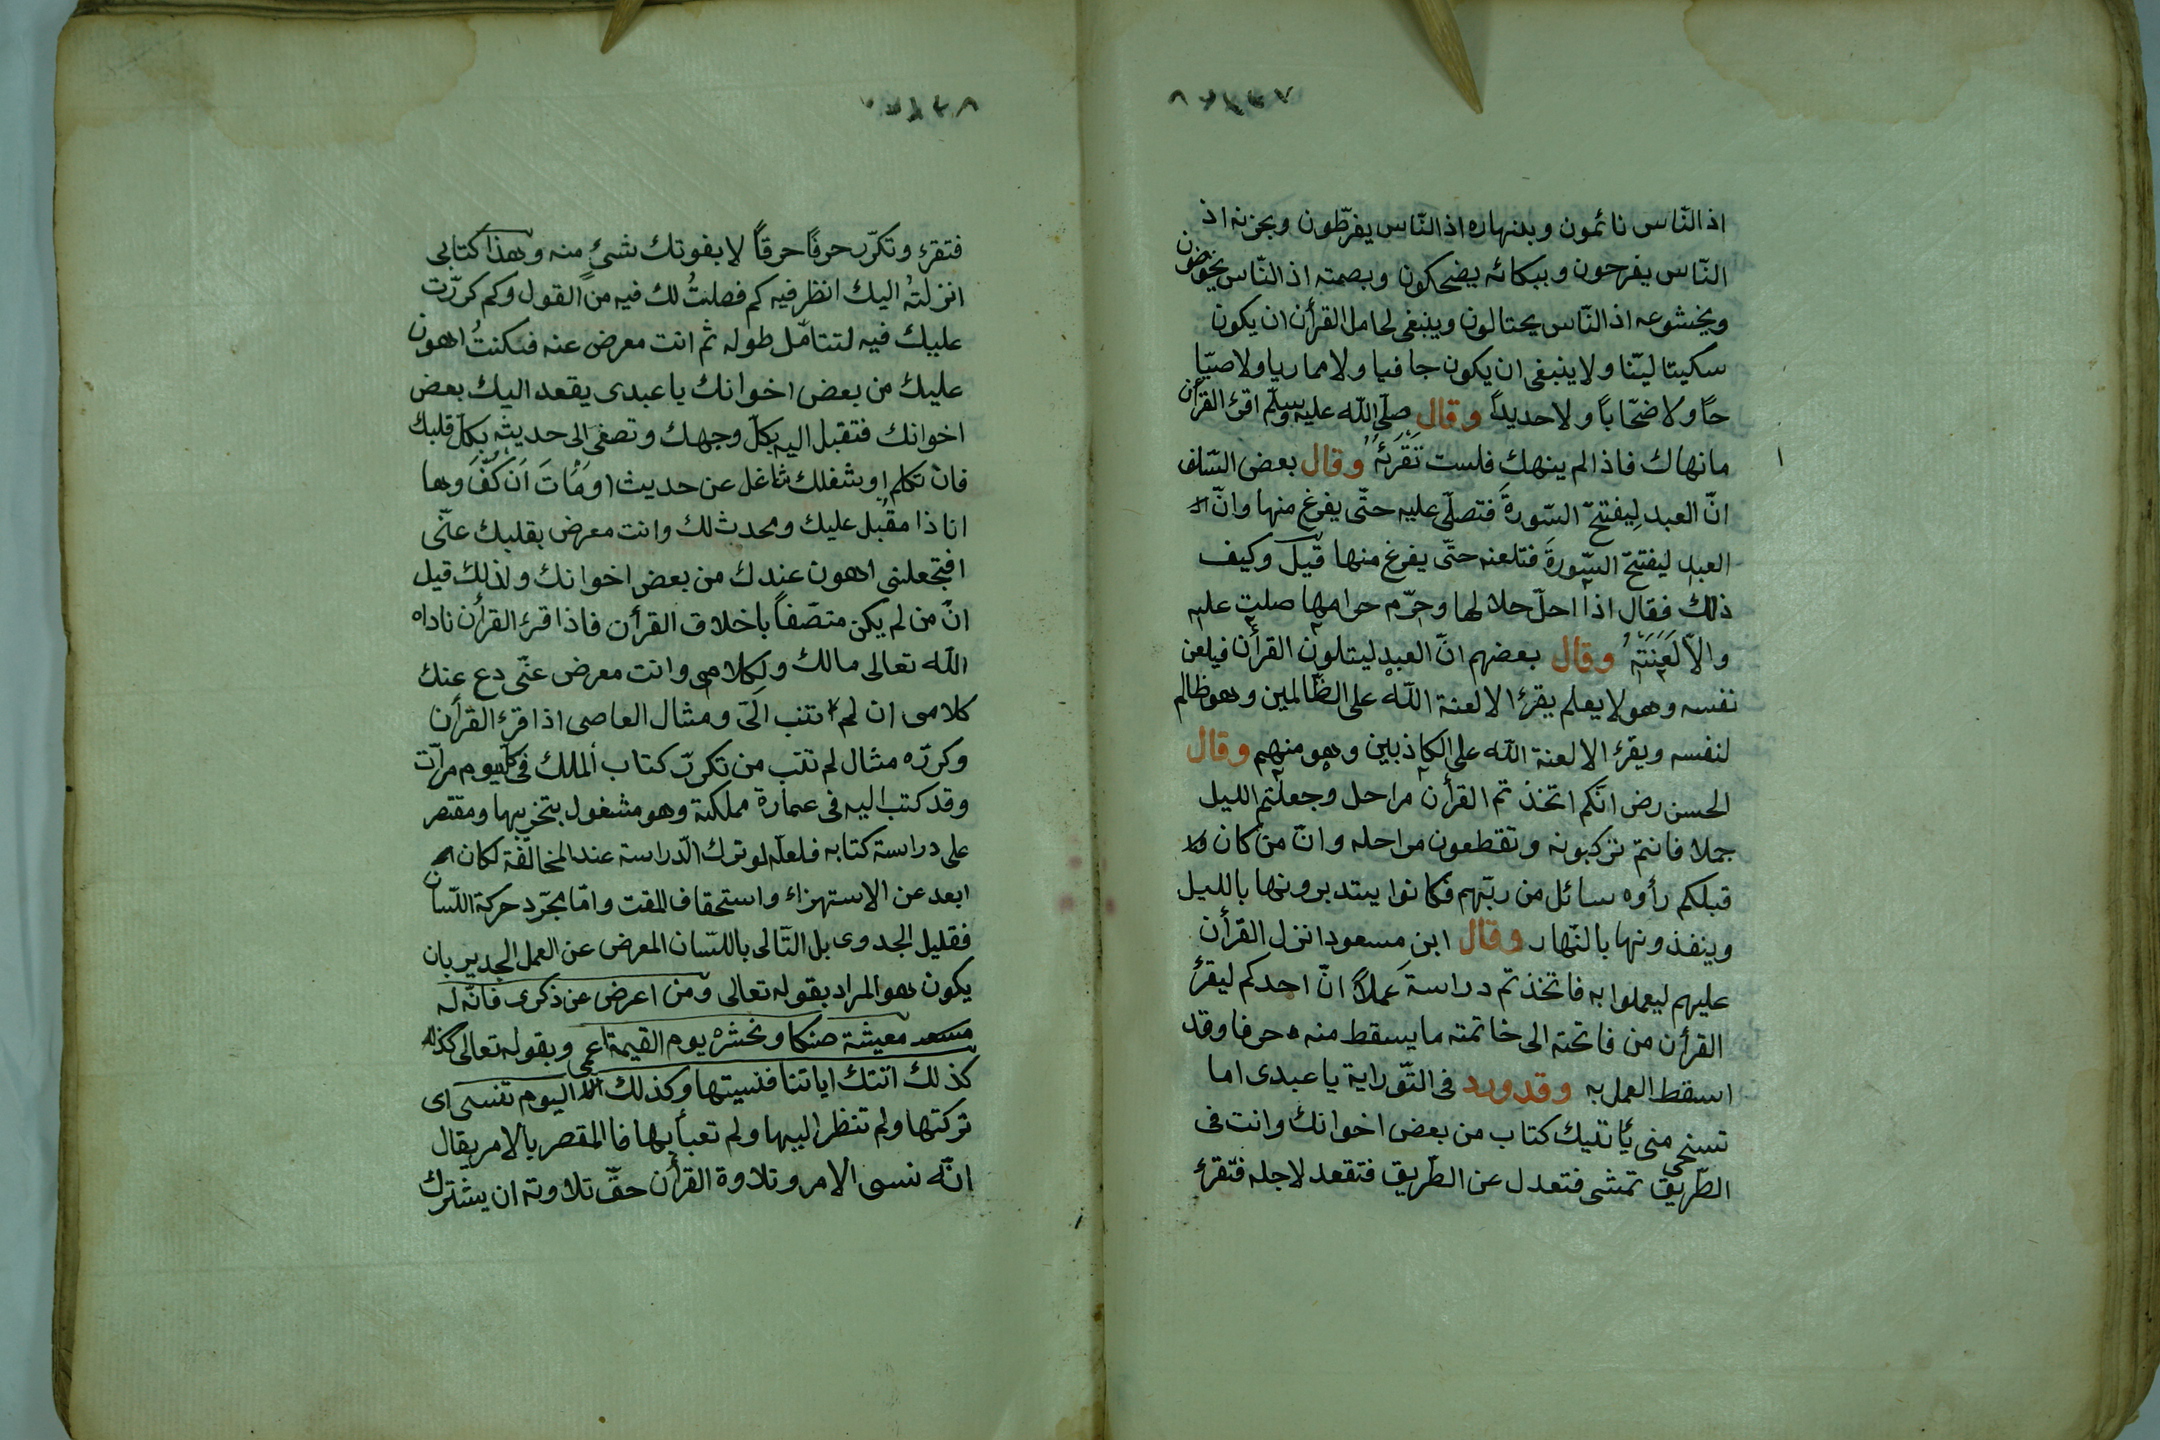 اذ النّاس نائمون وبنهاره اذ النّاس يفرّطون وبحزنه اذ
النّاس يفرحون وببكائه يضحكون وبصمته اذ النّاس يخوضون
وبخشوعه اذ النّاس يحتالون وينبغى لحامل القرأن ان يكون
سكيتا ليّنا ولا ينبغى ان يكون جافيا ولا مماريا ولا صيّا
حاً ولا ضحّاباً ولا حديداً وقال صلّى الله عليه وسلّم اقرئ القرأن
مانهاك فاذا لم ينهك فلست تَقْرَئهُ وقال بعض السّلف
انّ العبد لِيفتتحّ السّورةَ فتصلّى عليه حتّى يفرغ منها وانّ
العبد ليفتتحّ السّورةَ فتلعنه حتّى يفرغ منها قيل وكيف
ذلك فقال اذا احلّ حلالها وحرّم حرامها صلت عليه
والاّ لَعَنَتَهُ وقال بعضهم انّ العبد ليتلون القرأن فيلعن
نفسه وهو لا يعلم يقرئ الا لعنة الله على الظّالمين وهو ظالم
لنفسه ويقرئ الا لعنة الله على الكاذبين وهو منهم وقال
الحسن رض انّكم اتخذتم القرأن مراحل وجعلتم الليل
جملا فانتم تركبونه وتقطعون مراحله وانّ من كان
قبلكم رأوه سائل من ربّهم فكانوا يتدبرونها بالليل
وينفذونها بالنّهار وقال ابن مسعود انزل القرأن
عليهم ليعملوا به فاتخذتم دراسةَ عملاً انّ احدكم ليقرئ
القرأن من فاتحته الى خاتمته ما يسقط منه حرفا وقد
اسقط العمل به وقد ورد فى التّوراية يا عبدى اما
تستحى منى يأتليك كتاب من بعض اخوانك وانت فى
الطّريق تمشى فتعدل عن الطّريق فتقعد لاجله فتقرئ
فتقرئ وتكرّر حرفًا حرفًا لا يفوتك شئ منه وهذا كتابى
انزلته اليك انظر فيه كم فصلتُ لك فيه من القول وكم كرّرت
عليك فيه لتتامّل طوله ثم انت معرض عنه فكنتُ اهون
عليك من بعض اخوانك يا عبدى يقعد اليك بعض
اخوانك فتقبل اليه بكلّ وجهك وتصغى الى حديثه بكلّ قلبك
فان تكلم او شغلك شاغل عن حديث اومأتَ اَن كُفّ وها
انا ذا مقبل عليك ومحدث لك وانت معرض بقلبك عنّى
افتجعلنى اهون عندك من بعض اخوانك ولذلك قيل
انّ من لم يكن متصّفاً باخلاق القرأن فاذا قرئ القرأن ناداه
الله تعالى مالك ولكلامى وانت معرض عنّى دع عنك
كلامى ان لم تتب الىّ ومثال العاصى اذا قرئ القرأن
وكررّه مثال لم تتب من تكررّ كتاب الملك فى كل يوم مرّات
وقد كتب اليه فى عمارة مملكته وهو مشغول بتخريبها ومقتصر
على دراسة كتابه فلعلّه لو ترك الدّراسة عند المخالفة لكان
ابعد عن الاستهزاء واستحقاف المقت وامّا مجّرد حركة اللّسان
فقليل الجدوى بل التّالى باللسّان المعرض عن العمل الجدير بان
يكون هو المراد بقوله تعالى ومن اعرض عن ذكرى فانّه له
معيشة ضنكا ونحشره يوم القيمة اعمى وبقوله تعالى
كذلك اتتك اياتنا فنسيتها وكذلك اليوم تنسى اى
تركتها ولم تنظر اليها ولم تعبأ بها فا المقصر بالامر يقال
انّه نسى الامر وتلاوة القرأن حقّ تلاوته ان يشترك